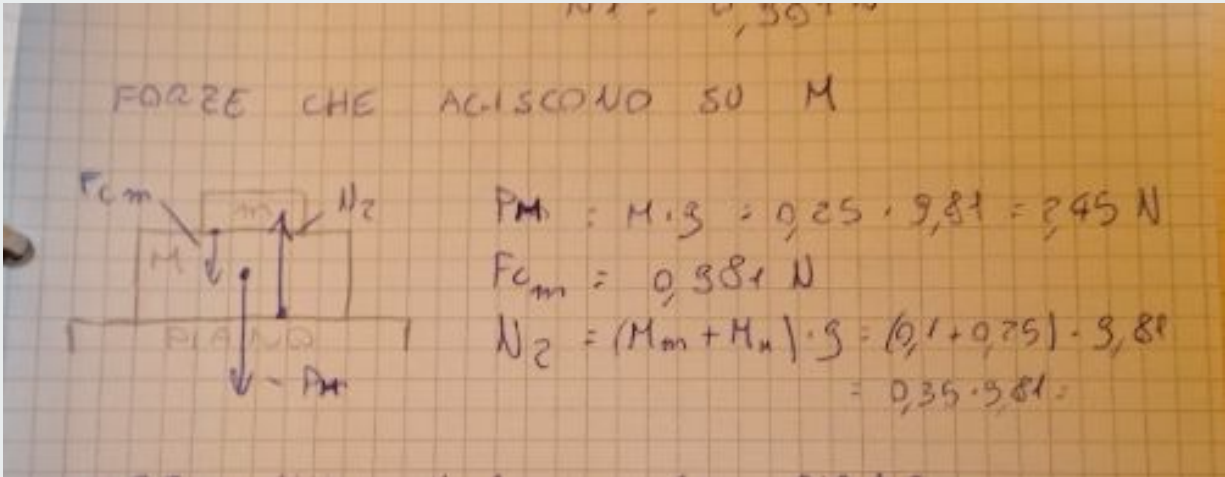 FORZE CHE AGISCONO SU M
Fcm
m
N2
M
PIANO
PM
PM = M·g = 0,25 · 9,81 = 2,45 N
Fcm = 0,981 N
N2 = (Mm + MM)·g = (0,1 + 0,25) · 9,81
= 0,35·9,81=